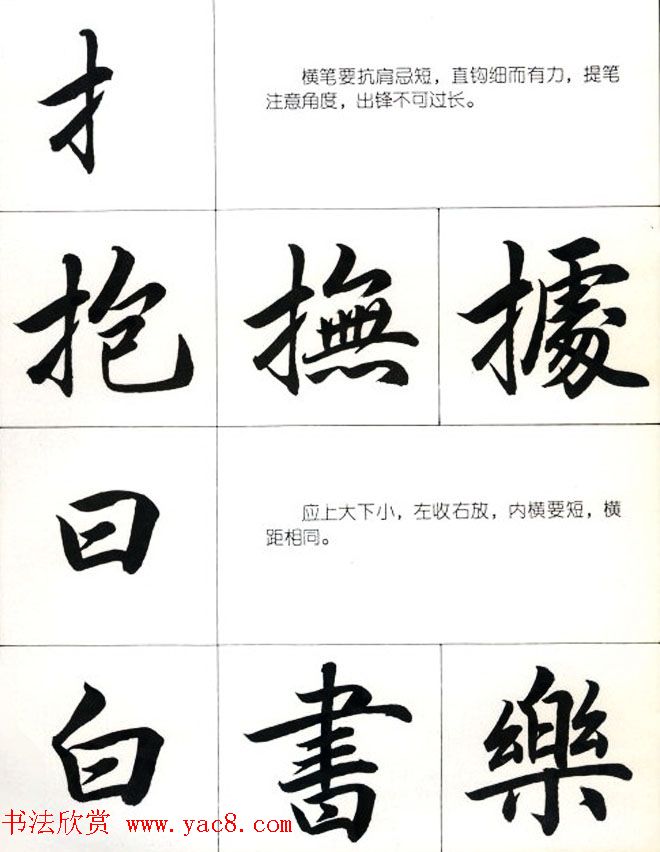 扌
横笔要抗肩忌短，直钩细而有力，提笔
注意角度，出锋不可过长。
抱 撫 據
曰
应上大下小，左收右放，内横要短，横
距相同。
白 書 樂
书法欣赏 www.yac8.com